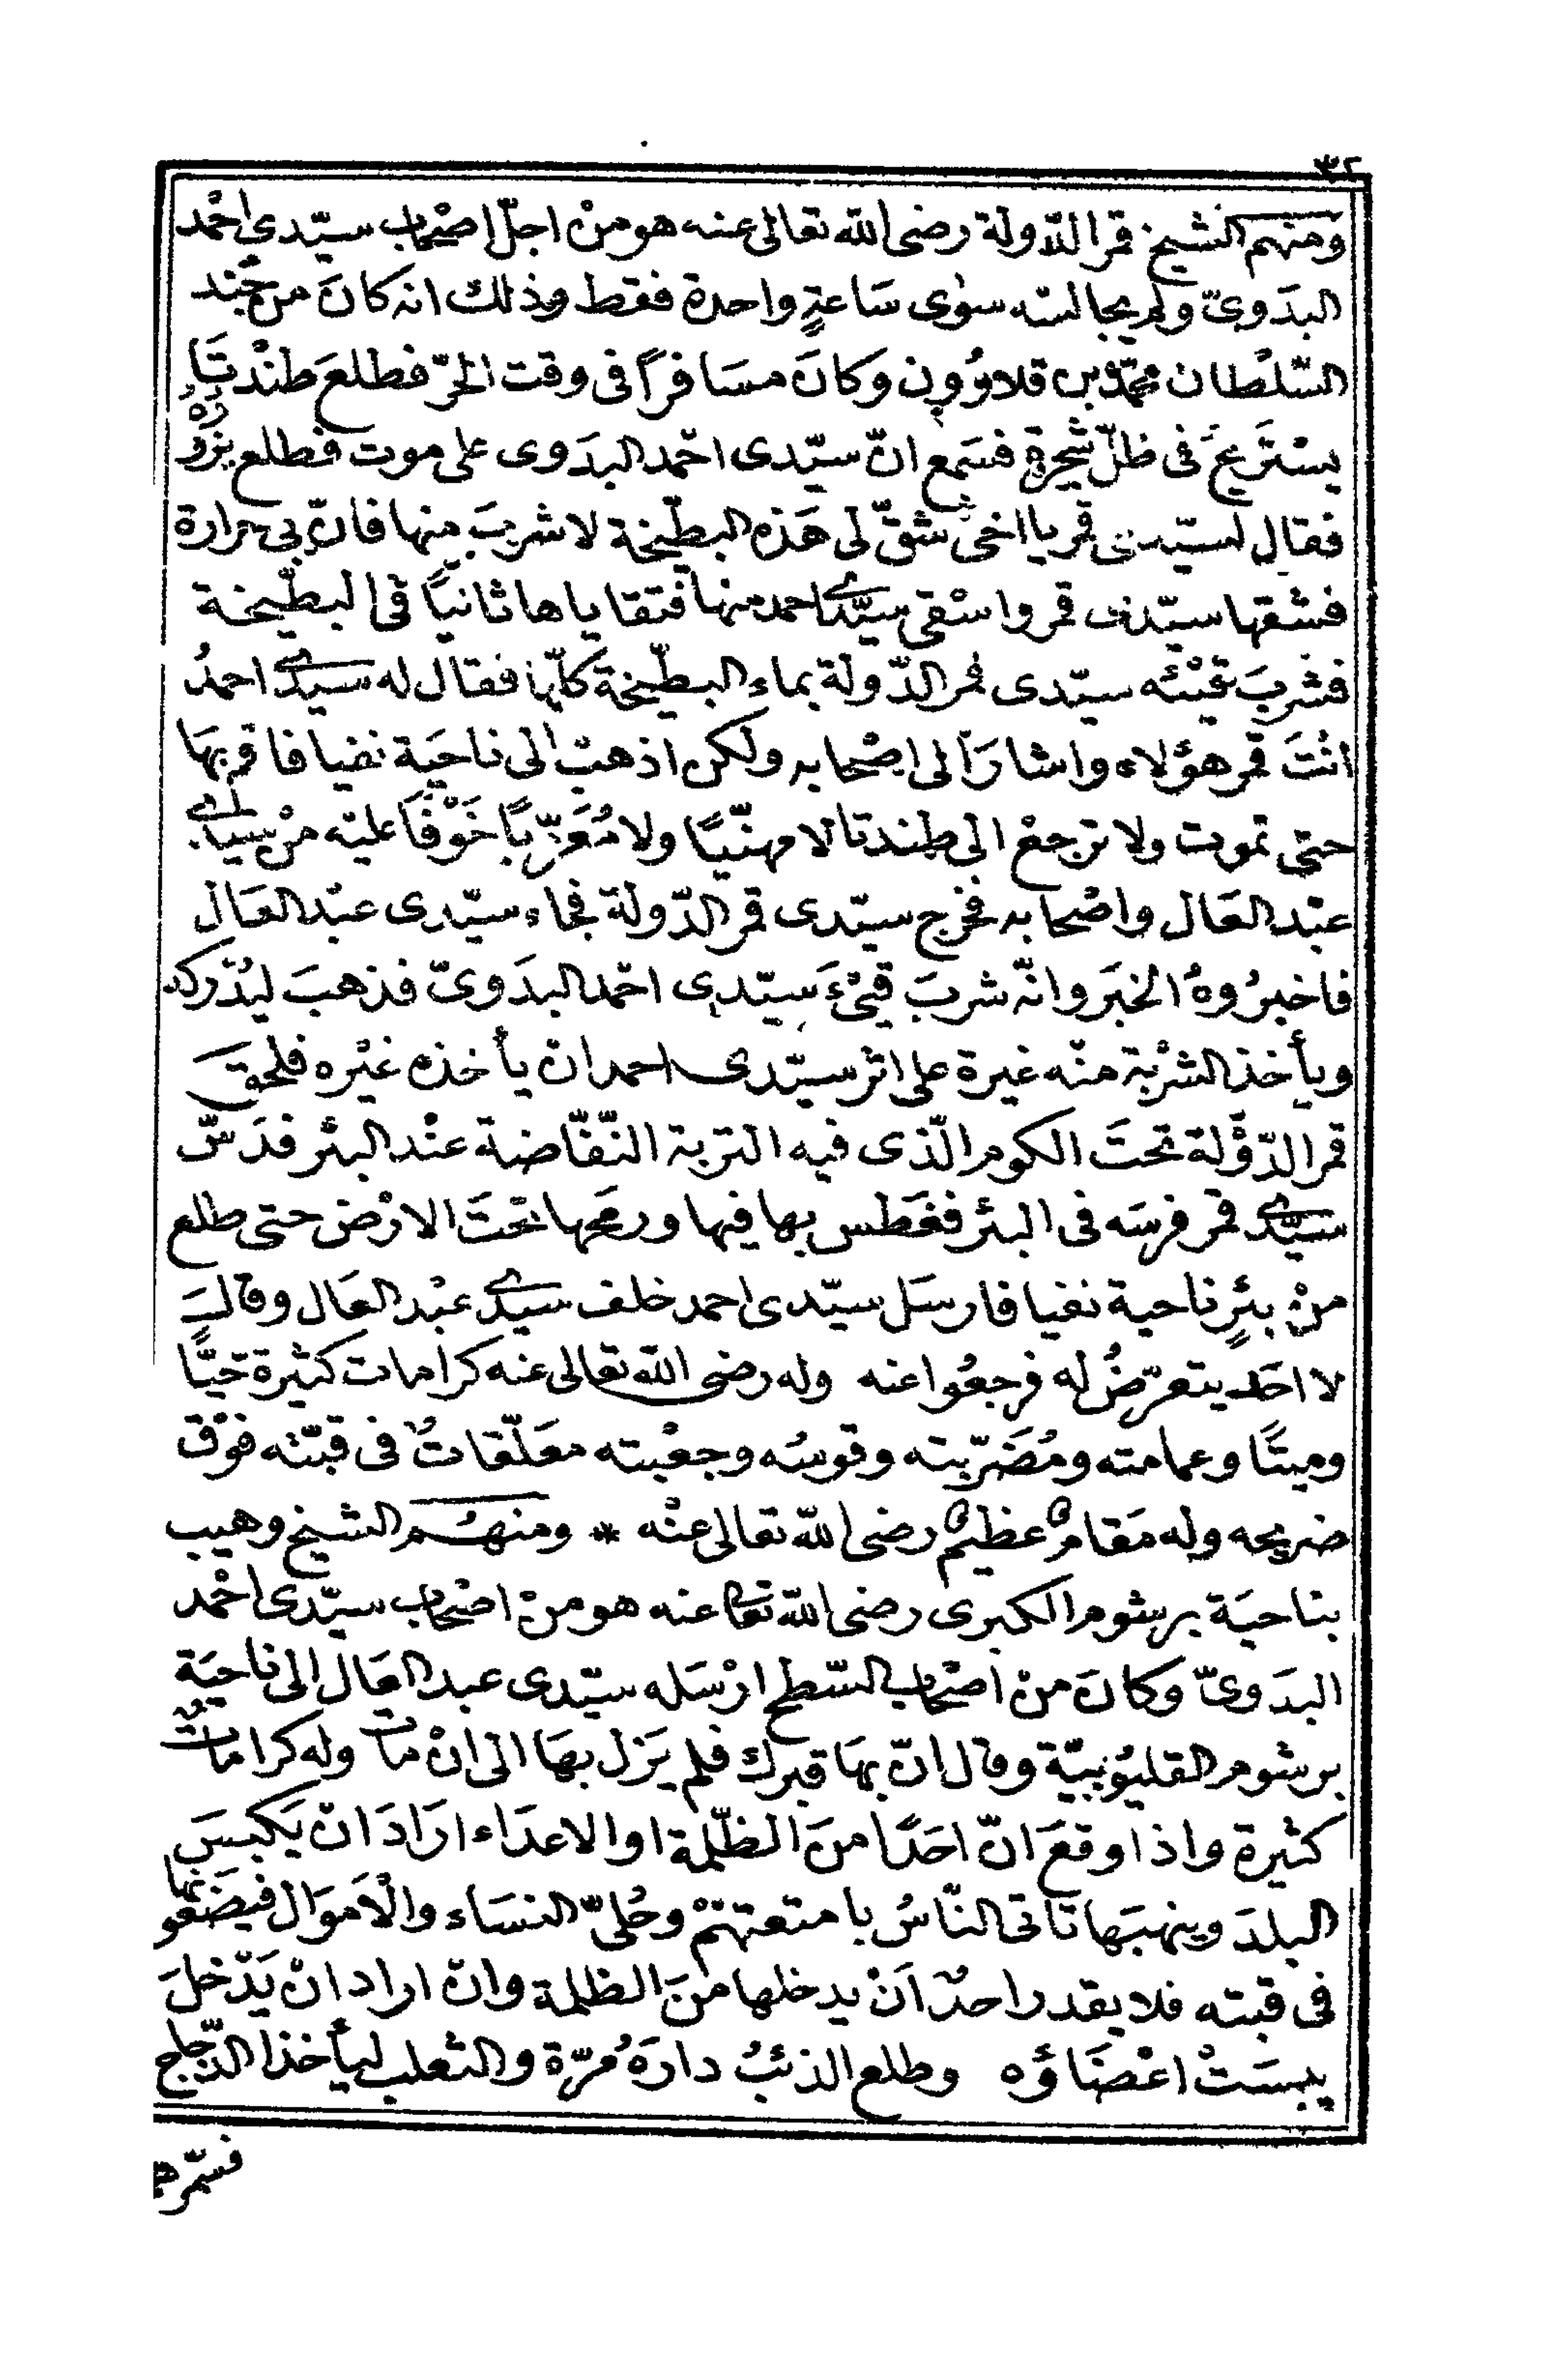 ٣٢
ومنهم الشيخ قمر الدّولة رضى الله تعالى عنه هو منْ اجلّ اصْحاب سيّدى احْمد
البدَوىّ ولم يجالسْه سوٰى سَاعةٍ واحدة فقط وذلك انه كانَ من جُند
السّلْطان محمّد بن قلاوُون وكانَ مسَافراً فى وقت الحَرّ فطلعَ طنْدتَا
يسْتَريحَ فى ظلّ شجرةٍ فسَمع انّ سيّدى احْمد البدَوى على موت فطلع يزُورُهُ
فقال لسيّدى قمر يا اخى شقّ لى هَذه البطّيخة لاشربَ منها فانّ بى حرارة
فشقها سيّدى قمر واسْقى سيّدى احمد منها فتقاياها ثانياً فى البطّيخة
فشربَ قيْئه سيّدى قمر الدّولة بماء البطّيخة كلّها فقال له سيّدى احمدُ
انْتَ قمر هؤلاء واشارَ الى اصْحابه ولكن اذهبْ الى ناحيَة نفيا فاقم بهَا
حتى تموت ولا ترجعْ الى طندتا لا مهنّيًا ولا مُعَزّيًا خَوْفاً عليْه منْ سيّدى
عبْد العَال واصْحابه فخرج سيّدى قمر الدّولة فجاء سيّدى عبْد العَال
فاخبرُوهُ الخبَر وانّه شربَ قيْءَ سيّدى احْمد البدَوىّ فذهبَ ليُدْركه
ويأخذ الشرْبة منْه غيرة على اثر سيّدى احمد ان يأخذه غيْره فلحق
قمر الدّوْلة تحتَ الكوم الّذى فيه التربة النّفّاضة عنْد البئر فدَسّ
سيّدى قمر فرسَه فى البئر فغَطس بها فيها ورمَحها تحْتَ الارْض حتى طلع
منْ بئرٍ ناحية نفيا فارسَل سيّدى احمد خلف سيّدى عبْد العَال وقال
لا احَد يتعرّضُ له فرجعُوا عنه وله رضى الله تعالى عنه كرامات كثيرة حيًّا
وميتًا وعمامته ومُضَرّبته وقوسُه وجعْبته معَلّقاتٌ فى قبّته فوْق
ضريحه وله مَقامٌ عظيمٌ رضى الله تعالى عنْه * ومنهُم الشيخ وهيب
بناحيَة برشوم الكبرى رضى الله تعالى عنه هو منْ اصْحاب سيّدى احْمد
البدَوىّ وكانَ منْ اصْحاب السّطح ارْسَله سيّدى عبد العَال الى ناحيَة
برشوم القليُوبيّة وقال انّ بهَا قبرك فلم يَزل بهَا الى انْ مات وله كرامات
كثيرة واذا وقعَ انّ احَدًا منَ الظّلمة او الاعدَاء ارَادَ انْ يَكبسَ
البلدَ وينهبَها تاتى النّاسُ بامتعتهمْ وحُلىّ النسَاء والْاَموَال فيضَعُونها
فى قبته فلا يقدر احدٌ اَنْ يدخلها منَ الظلمة وانْ اراد انْ يَدْخلَ
يبسَتْ اعْضَاؤه وطلع الذئبُ دارَهُ مُرّة والثعلب ليأخذ الدّجاج
فسمّرها